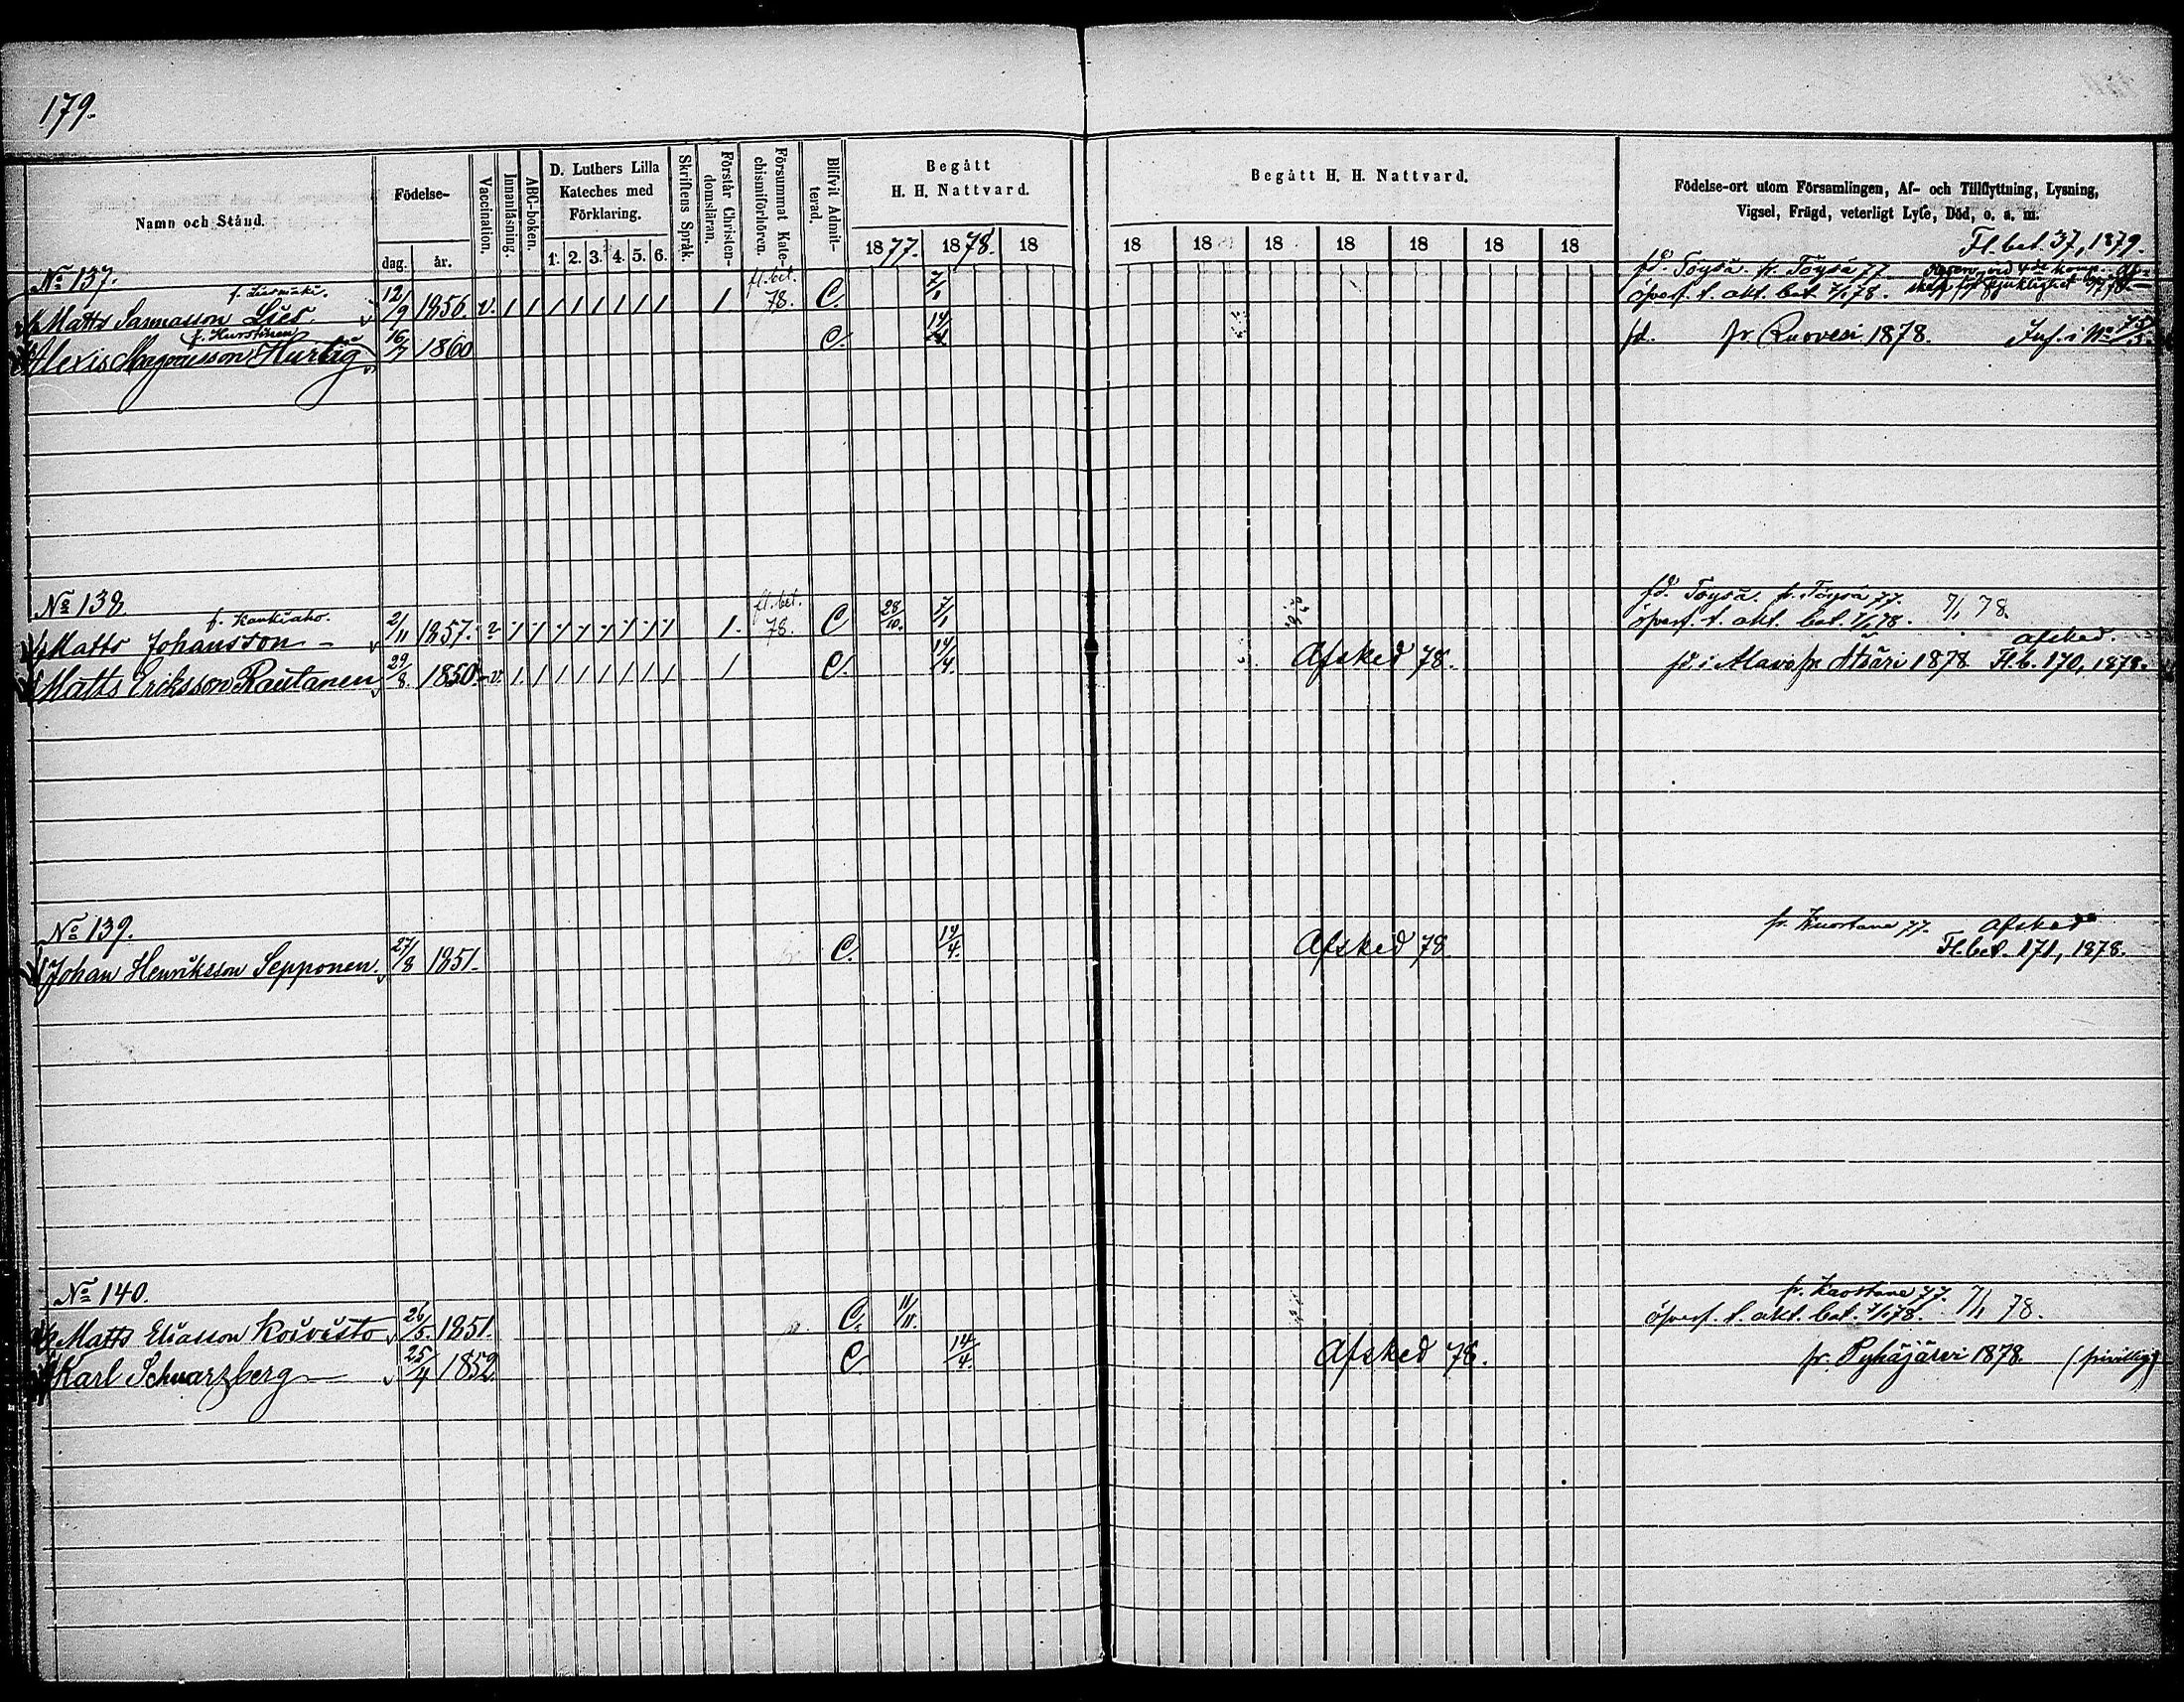 179.
Namn och Stånd.
Födelse-
dag. år.
Vaccination.
Innanläsning.
ABC-boken.
D. Luthers Lilla
Kateches med
Förklaring.
1. 2. 3. 4. 5. 6.
Skriftens Språk.
Förstår Christen-
domsläran.
Försummat Kate-
chismiförhören.
Blifvit Admit-
terad.
Begått
H. H. Nattvard.
1877. 1878. 18
Begått H. H. Nattvard.
18 18 18 18 18 18 18
Födelse-ort utom Församlingen, Af- och Tillflyttning, Lysning,
Vigsel, Frägd, veterligt Lyte, Död, o. a. m.
Fl. bet. 37, 1879.
No 137.
fl. bet.
fd. Töysä. fr. Töysä 77.
Matts 12/9 1856. v. 1 1 1 1 1 1 1 1 1. 78. C. 7/1 öfverf. t. akt. bat 7/1 78.
f. Hurstinen
Alexis Hurtig 16/7 1860 C. 14/4 fd. fr. Ruovesi 1878. Inf. i No
No 138.
f. Kaukiaho. fl. bet. fd. Töysä. fr. Töysä 77.
Matts Johansson 2/11 1857. 78. C 28/10. 7/1 öfverf. t. akt. bat. 7/1 78. 7/1 78.
Afsked.
Matts Eriksson Rautanen 29/8. 1850. v. 1. 1 1 1 1 1 1 1 1 C. 14/4. Afsked 78. fd. i Alavo fr Ätsäri 1878 Fl. b. 170, 1878.
No 139.
fr. Kuortane 77. Afsked
Johan Henriksson Sepponen. 27/8 1851. C. 14/4. Afsked 78 Fl. bet. 171, 1878.
No 140.
fr. Kuortane 77.
Matts Eliasson Koivisto 26/5. 1851. C. 11/11. öfverf. t. akt. bat. 7/1 78. 7/1 78.
Karl Schwarzberg 25/4 1852 C. 14/4. Afsked 78. fr. Pyhäjärvi 1878. (frivillig)